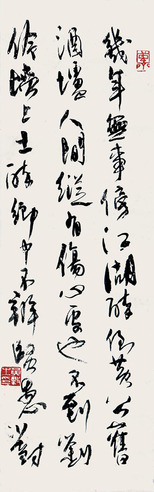 幾年無事傍江湖醉倒黃公舊
酒壚人間縱有傷心處也不到劉
伶墳上土醉鄉中不辨賢愚對